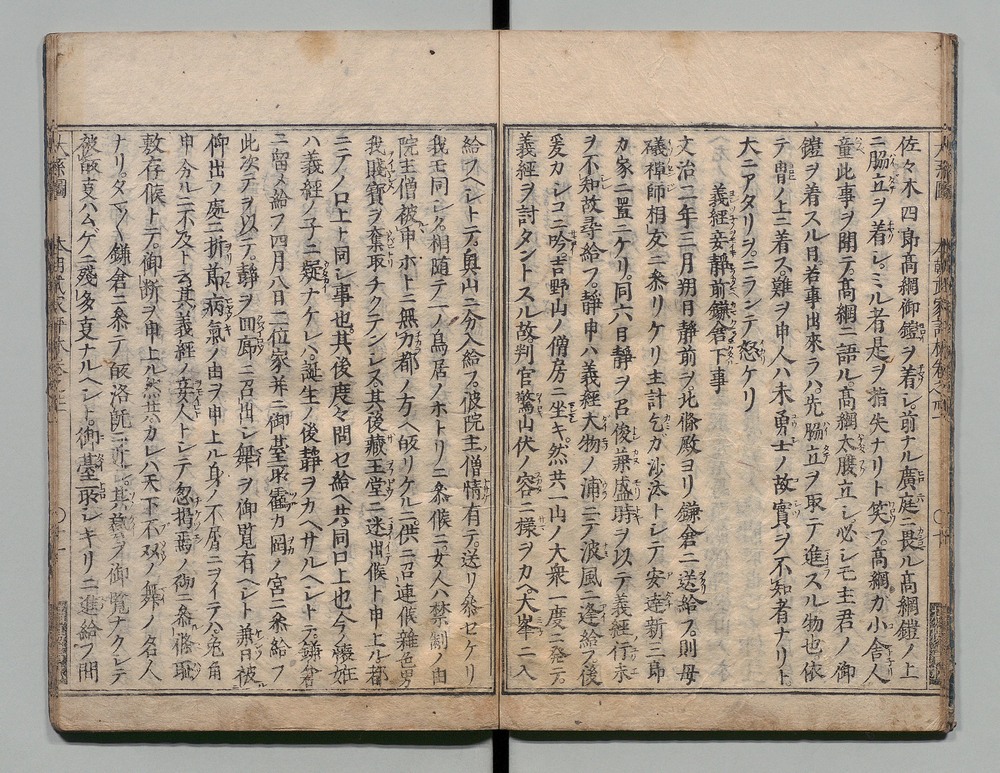 佐々木四郎高綱御鎧ヲ着シ前ナル廣庭ニ畏ル高綱鎧ノ上
ニ脇立ヲ着シミル者是ヲ指失ナリト笑フ高綱カ小舎人
童此事ヲ聞テ高綱ニ語ル高綱大腹立シ必シモ主君ノ御
鎧ヲ着スル日若事出來ラハ先脇立ヲ取テ進スル物也依
テ冑ノ上ニ着ス難ヲ申人ハ未勇士ノ故實ヲ不知者ナリト
大ニアタリヲニランテ怒ケリ
義經妾靜前鎌倉下事
文治二年三月朔日靜前ヲ北條殿ヨリ鎌倉ニ送給フ則母
礒禪師相友ニ參リケリ主計乞カ沙汰トシテ安達新三郎
カ家ニ置ニケリ同六日靜ヲ召俊兼盛時ヲ以テ義經行末
ヲ不知故尋給フ靜申ハ義經大物ノ浦ニテ波風ニ逢給フ後
爰カシコニ吟吉野山ノ僧房ニ坐キ然共一山ノ大衆一度ニ發テ
義經ヲ討タントスル故判官驚山伏ノ容ニ様ヲカヘ大峯ニ入
給フヘシトテ奥山ニ分入給フ彼院主僧情有テ送リ參セケリ
我モ同シク相随テ一ノ鳥居ノホトリニ參候ニ女人ハ禁制ノ由
院主僧被申ホトニ無力都ノ方ヘ皈リケルニ供ニ召連候雜色男
我賤寳ヲ奪取チクテンシ其後藏王堂ニ迷出候ト申上ル都
ニテノ口上ト同シ事也其後度々問セ給ヘ共同口上也今ノ懐妊
ハ義經ノ子ニ疑ナケレハ誕生ノ後靜ヲカヘサルヘシトテ鎌倉
ニ留メ給フ四月八日二位家并ニ御臺所靏カ岡ノ宮ニ參給フ
此次テヲ以テ靜ヲ回廊ニ召出シ舞ヲ御覧有ヘシト兼日被
仰出ノ處ニ折節病氣ノ由ヲ申上ル身ノ不屑ニヲイテハ兎角
申分ルニ不及ト云其義經ノ妾人トシテ忽掲焉ノ御ニ參條耻
敷存候トテ御断ヲ申上ル然共カレハ天下不双ノ舞ノ名人
ナリタマ〱鎌倉ニ參テ皈洛既ニ近シ其藝ヲ御覧ナクンテ
被敢支ハムゲニ殘多支ナルヘシト御臺所シキリニ進給フ間